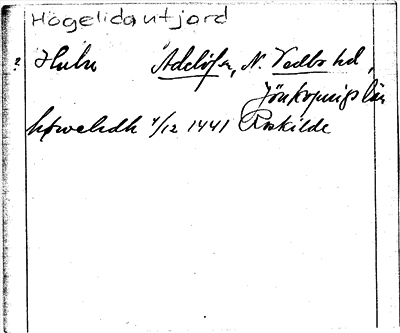 Högelidautjord
? Hulu Adelöfsn, N. Vedbo hd,
Jönköpings län
høwelydh 4/12 1441 Roskilde